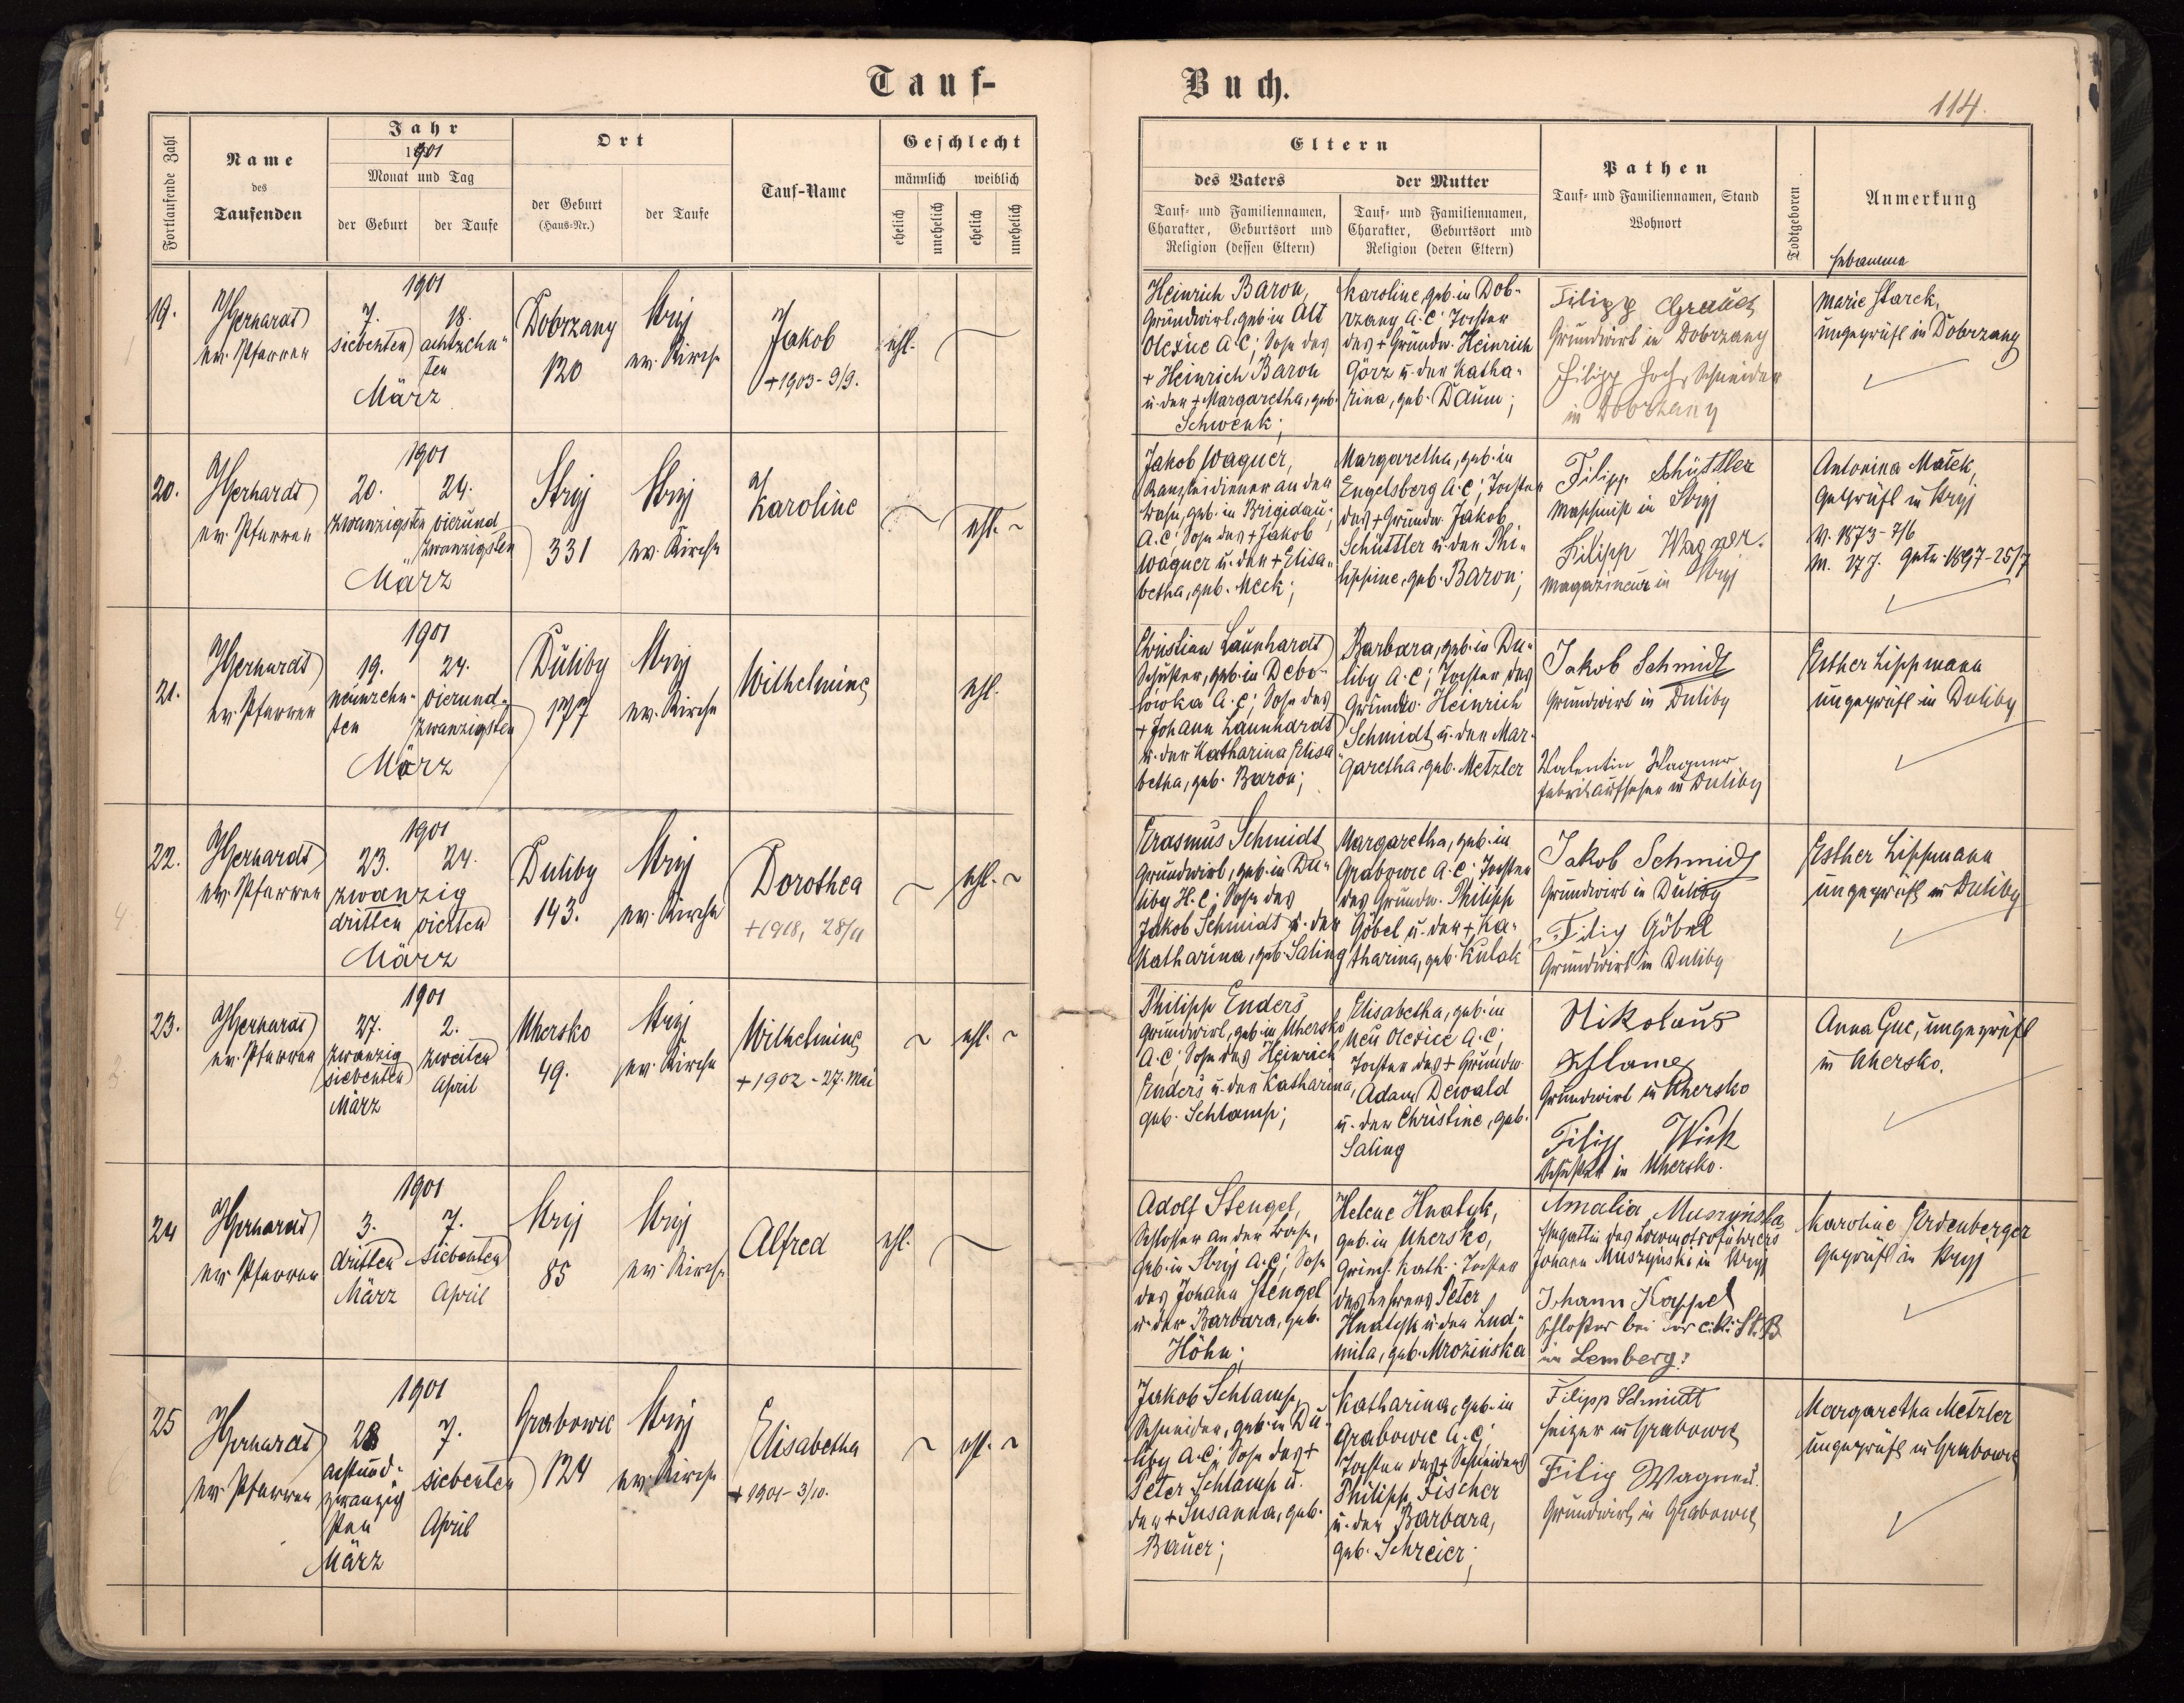 Tauf-
Buch.
114.
Fortlaufende Zahl
Name
des
Taufenden
Jahr
1901
Monat und Tag
der Geburt
der Taufe
Ort
der Geburt
(Haus-Nr.)
der Taufe
Tauf-Name
Geschlecht
männlich weiblich
ehelich
unehelich
ehelich
unehelich
Eltern
des Vaters
Tauf- und Familiennamen,
Charakter, Geburtsort und
Religion (dessen Eltern)
der Mutter
Tauf- und Familiennamen,
Charakter, Geburtsort und
Religion (deren Eltern)
Pathen
Tauf- und Familiennamen, Stand
Wohnort
Todtgeboren
Anmerkung
Hebamme
19.
Gerhardt
ev. Pfarrer
1901
7.
siebenten
18.
achtzehn-
ten
März
Dobrzany
120
Stryj
ev. Kirche
Jakob
+1903-9/9.
ehl.
Heinrich Baron,
Grundwirt, geb. in Alt
Olexne A.C; Sohn des
+ Heinrich Baron
u. der + Margaretha, geb.
Schwenk;
Karoline, geb. in Dob-
rzany A.C; Tochter
des + Grundw. Heinrich
Görz u. der Katha-
rina, geb. Daum;
Filipp
Grundwirt in Dobrzany
Filipp Hoch, Schneider
in Dobrzany
Marie Starck,
ungeprüft in Dobrzany
20.
Gerhardt
ev. Pfarrer
1901
20.
zwanzigsten
24.
vierund
zwanzigsten
März
Stryj
331
Stryj
ev. Kirche
Karoline
ehl.
Jakob Wagner,
Kanzleidiener an der
Bahn, geb. in Brigidau;
A.C; Sohn des + Jakob
Wagner u. der + Elisa-
betha, geb. Meck;
Margaretha, geb. in
Engelsberg A.C; Tochter
des + Grundw. Jakob
Schüttler u. der Phi-
lippine, geb. Baron;
Filipp Schüttler
Maschinist in Stryj
Filipp Wagner.
Magazineur in Stryj
Antonina Małek,
geprüft in Stryj
V. 1873-7/6
M. 27 J. getr. 1897-25/7
21.
Gerhardt
ev. Pfarrer
1901
19.
neunzehn-
ten
24.
vierund-
zwanzigsten
März
Duliby
177
Stryj
ev. Kirche
Wilhelmine
ehl.
Christian Launhardt
Schuster, geb. in Debo-
lowka A.C; Sohn des
+ Johann Launhardt
u. der Katharina Elisa
betha, geb. Baron;
Barbara, geb. in Du-
liby A.C; Tochter des
Grundw. Heinrich
Schmidt u. der Mar-
garetha, geb. Metzler
Jakob Schmidt
Grundwirt in Duliby
Valentin Wagner
Fabriksaufseher in Duliby
Esther Lippmann
ungeprüft in Duliby
22.
Gerhardt
ev. Pfarrer
1901
23.
24.
zwanzig
dritten vierten
März
Duliby
143.
Stryj
ev. Kirche
Dorothea
+1918, 28/11
ehl.
Erasmus Schmidt
Grundwirt, geb. in Du-
liby H.C; Sohn des
Jakob Schmidt u. der
Katharina, geb. Saling
Margaretha, geb. in
Grabowce A.C; Tochter
des Grundw. Philipp
Göbel u. der + Ka-
tharina, geb. Kulak
Jakob Schmidt
Grundwirt in Duliby
Filip Göbel
Grundwirt in Duliby
Esther Lippmann
ungeprüft in Duliby
23.
Gerhardt
ev. Pfarrer
1901
27.
zwanzig
siebenten
März
2.
zweiten
April
Uhersko
49.
Stryj
ev. Kirche
Wilhelmine
+1902-27. Mai
ehl.
Philipp Enders
Grundwirt, geb. in Uhersko
A.C; Sohn des Heinrich
Enders u. der Katharina,
geb. Schlamp;
Elisabetha, geb. in
Neu Olexne A.C;
Tochter des + Grundw
Adam Dewald
u. der Christine, geb.
Saling
Nikolaus
Grundwirt in Uhersko
Filipp Wick
Schuster in Uhersko.
Anna Guc, ungeprüft
in Uhersko.
24
Gerhardt
ev Pfarrer
1901
3.
dritten
März
7.
siebenten
April
Stryj
85
Stryj
ev. Kirche
Alfred
ehl.
Adolf Stengel,
Schlosser an der Bahn,
geb. in Stryj A.C; Sohn
des Johann Stengel
u. der Barbara, geb.
Höhn;
Helene Hnatyk,
geb. in Uhersko,
griech. kath. Tochter
des Lehrers Peter
Hnatyk u. der Lud-
mila, geb. Mrozińska
Amalia Muszyńska
Ehegattin des Locomotivführers
Johann Muszyński in Stryj
Johann Kappel
Schlosser bei der k.k. St. B.
in Lemberg.
Karoline Erdenberger
geprüft in Stryj
25
Gerhardt
ev. Pfarrer
1901
28
achtund-
zwanzig
sten
März
7.
siebenten
April
Grabowce
124
Stryj
ev. Kirche
Elisabetha
+1901-3/10.
ehl.
Jakob Schlamp,
Schneider, geb. in Du-
liby A.C; Sohn des +
Peter Schlamp u.
der + Susanna, geb.
Bauer;
Katharina, geb. in
Grabowce A.C;
Tochter des + Schneiders
Philipp Fischer
u. der Barbara,
geb. Schreier;
Filipp Schmidt
Heizer in Grabowce
Filip Wagner.
Grundwirt in Grabowce
Margaretha Metzler
ungeprüft in Grabowce